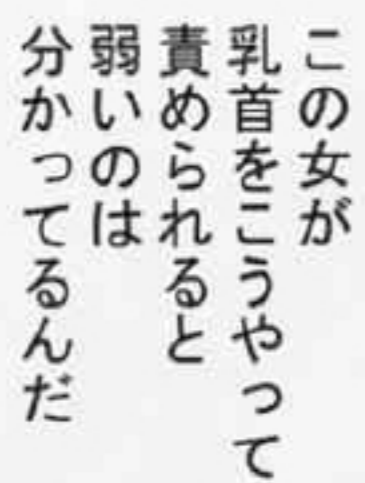 この女が
乳首をこうやって
責められると
弱いのは
分かってるんだ